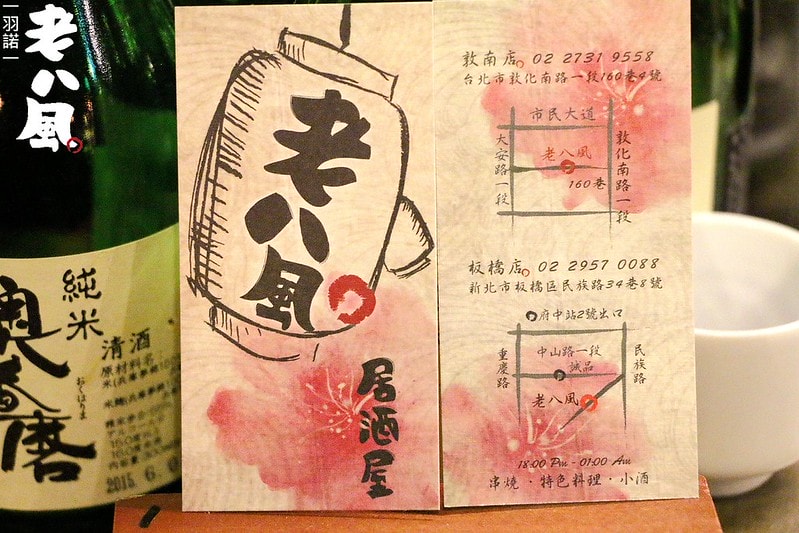 羽諾
老八風
純米
奥播磨
おくはりま
清酒
原材料名:
2015.6.
老八風
居酒屋
敦南店。02 2731 9558
台北市敦化南路一段160巷4號
市民大道
大安路一段
老八風
160巷
敦化南路一段
板橋店。02 2957 0088
新北市板橋區民族路34巷8號
府中站2號出口
重慶路
中山路一段
誠品
民族路
老八風
18:00 Pm - 01:00 Am
串燒・特色料理・小酒